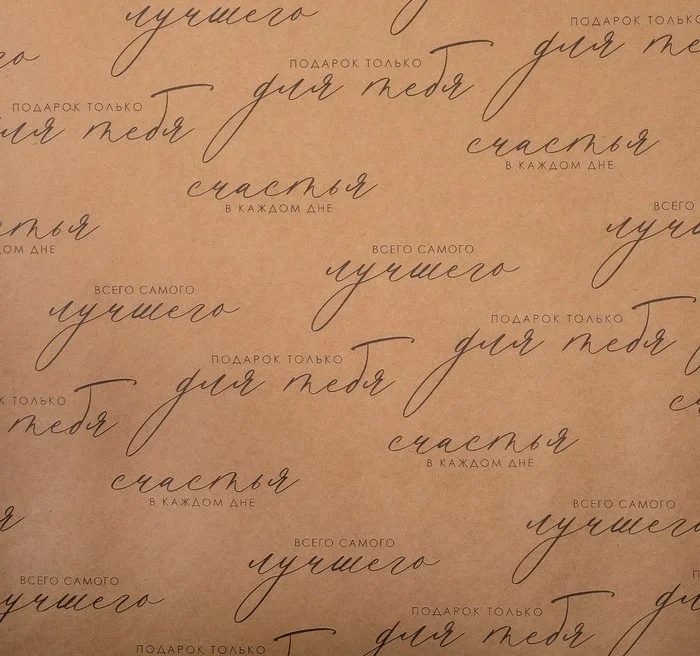 лучшего
ПОДАРОК ТОЛЬКО
для те
ПОДАРОК ТОЛЬКО
для тебя
ПОДАРОК ТОЛЬКО
для тебя
счастья
В КАЖДОМ ДНЕ
счастья
В КАЖДОМ ДНЕ
ВСЕГО
лучш
стья
ДОМ ДНЕ
ВСЕГО САМОГО
лучшего
ВСЕГО САМОГО
лучшего
ПОДАРОК ТОЛЬКО
для тебя
ПОДАРОК ТОЛЬКО
для тебя
К ТОЛЬКО
тебя
счастья
В КАЖДОМ ДНЕ
счастья
В КАЖДОМ ДНЕ
ВСЕГО САМОГО
лучшего
ВСЕГО САМОГО
лучшего
ВСЕГО САМОГО
лучшего
ПОДАРОК ТОЛЬКО
для тебя
ПОДАРОК ТОЛЬКО